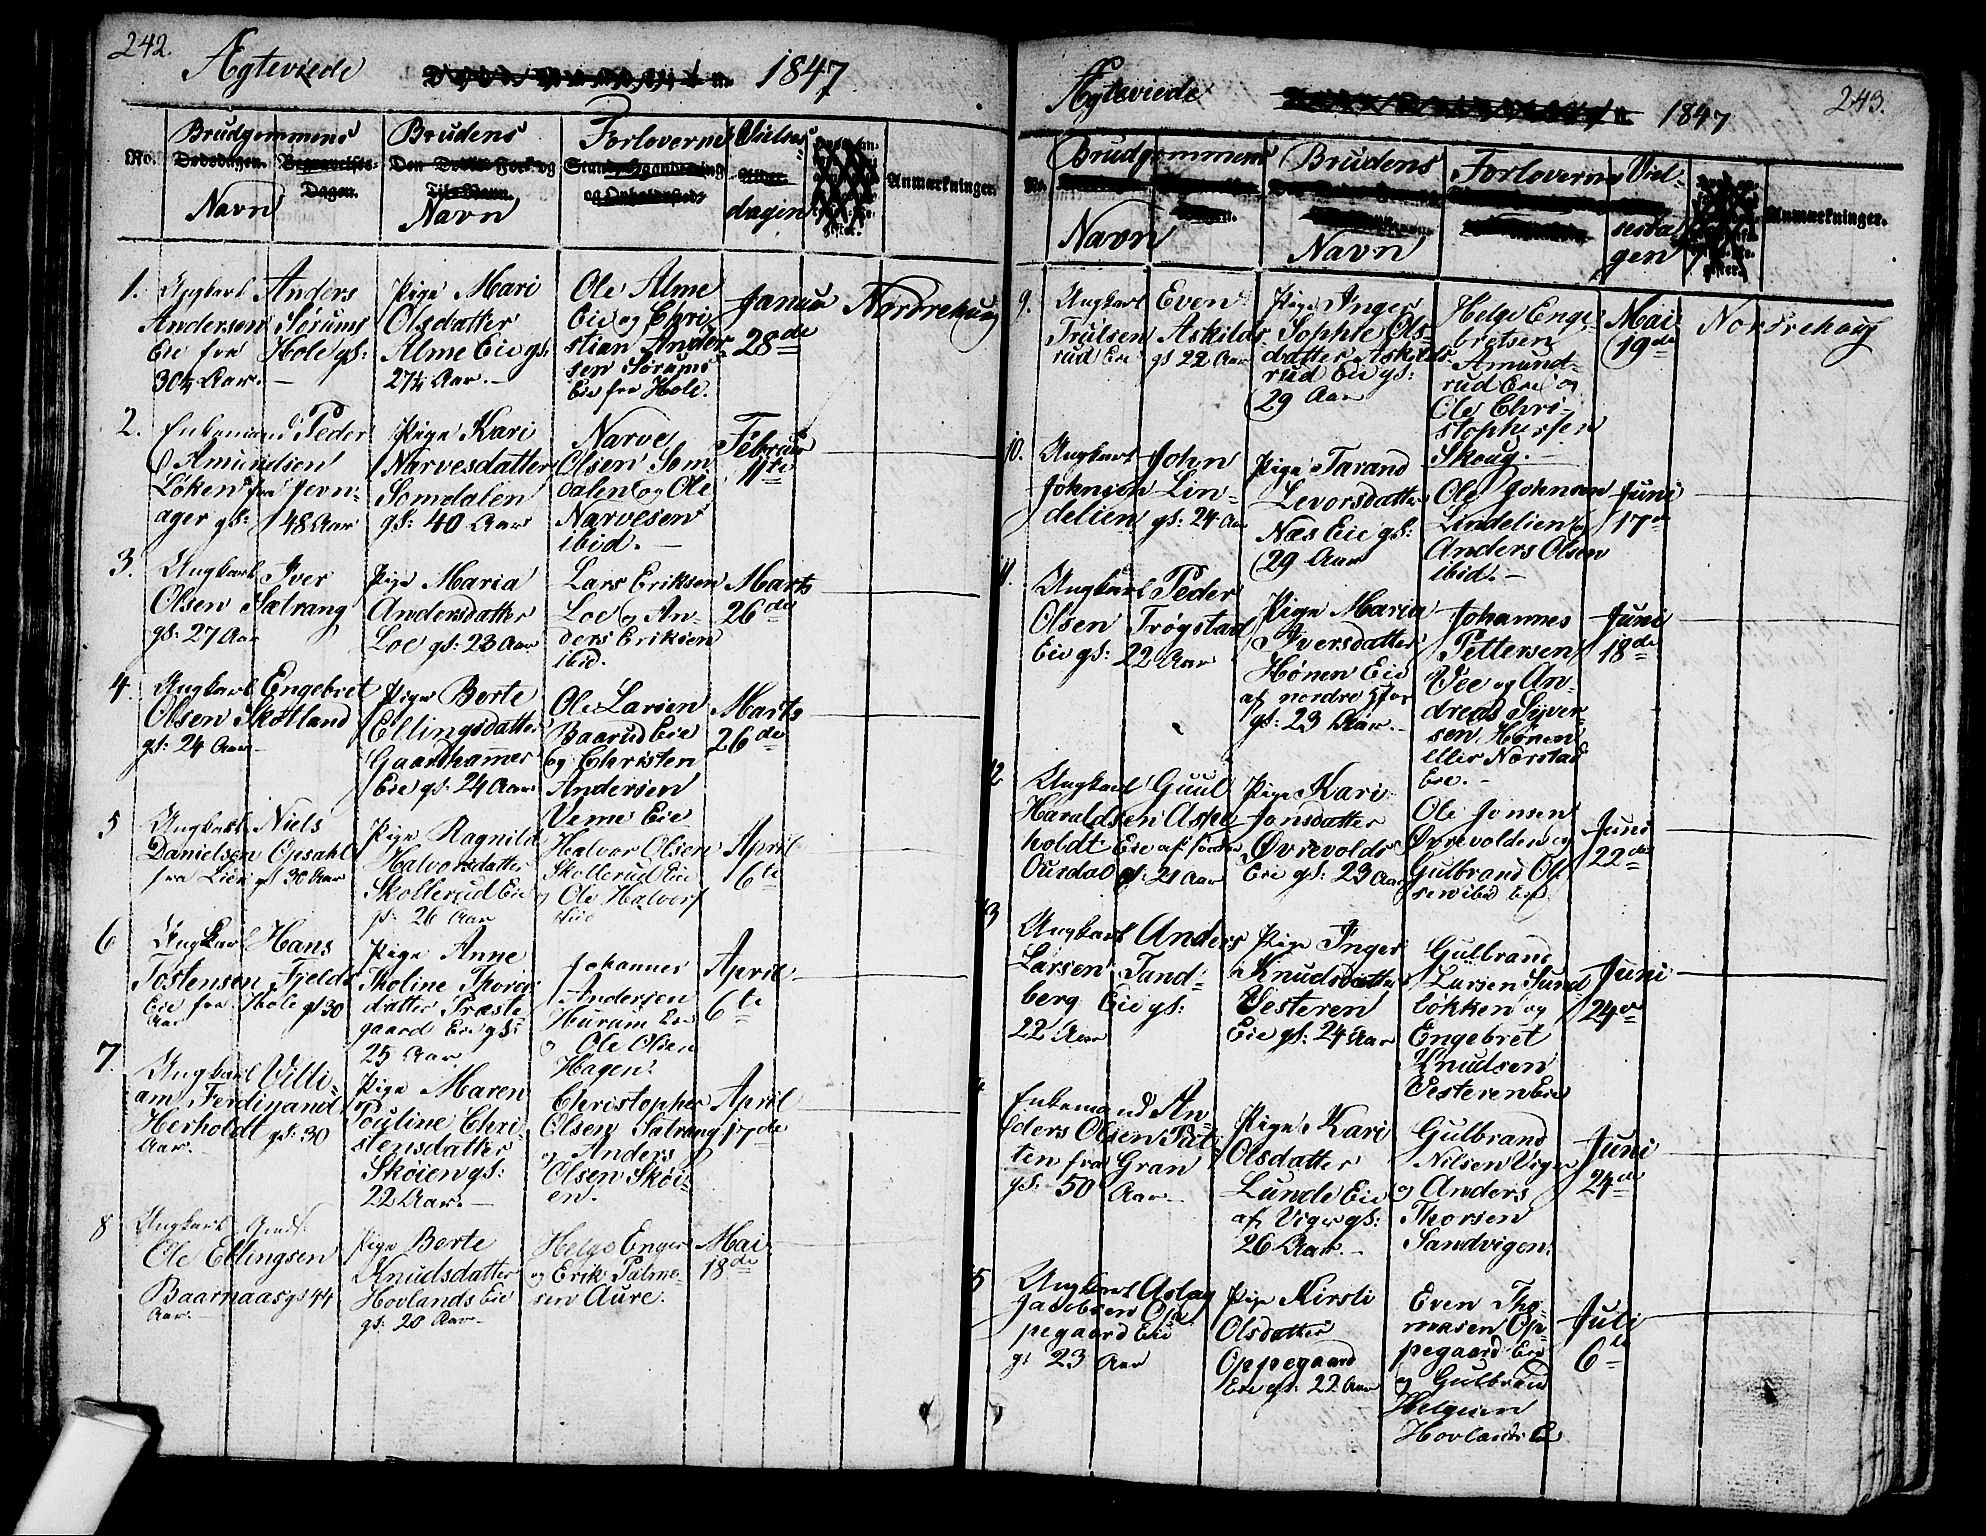 242.
Ægteviede 1847
No.
Brudgommens
Dødsdagen.
Begravelses-
Dagen.
Navn
Brudens
Den Dødes For- og
Tilnavn.
Navn
Forloverne
Stand, Haandtering
og Opholdssted.
Vielses
Alder.
dagen
Anmærkninger.
1. Ungkarl Anders
Andersen Sørums
Eie fra Hole gl:
30¼ Aar. —
Pige Mari
Olsdatter
Alme Eie gl:
27¼ Aar. —
Ole Alme
Eie og Chri
stian Ander
sen Sørums
Eie fra Hole.
Januar
28de
Nordrehaug
2. Enkemand Peder
Amundsen
Løken fra Jevn-
ager gl: 48 Aar
Pige Kari
Narvesdatter
Somdalen
gl: 40 Aar
Narve
Olsen Som
dalen og Ole
Narvesen
ibid. —
Februar
11te
3. Ungkarl Iver
Olsen Sætrang
gl: 27 Aar
Pige Maria
Andersdatter
Loe gl: 23 Aar
Lars Eriksen
Loe og An-
ders Eriksen
ibid.
Marts
26de
4. Ungkarl Engebret
Olsen Skøtland
gl: 24 Aar
Pige Berte
Ellingsdatter
Gaardhamer
Eie gl: 24 Aar
Ole Larsen
Baarud Eie
og Christen
Andersen
Veme Eie
Marts
26de
5 Ungkarl Niels
Danielsen Opsahl
fra Lier gl 30 Aar
Pige Ragnild
Halvorsdatter
Skollerud Eie
gl: 26 Aar
Halvor Olsen
Skollerud Eie
og Ole Halvors
April
6te
6 Ungkarl Hans
Tostensen Fjelds
Eie fra Hole gl 30
Aar
Pige Anne
Tholine Thors
datter Præste
gaard Eie gl:
25 Aar
Johannes
Andersen
Hurum Eie
og Ole Olsen
Hagen.
April
6te
7. Ungkarl Villi-
am Ferdinand
Herholdt gl: 30
Aar.
Pige Maren
Pouline Chri
stensdatter
Skøien gl:
22 Aar. —
Christopher
Olsen Sætrang
og Anders
Olsen Skøi-
en.
April
17de
8 Ungkarl
Ole Ellingsen
Baarnaas gl 44
Aar.
Pige Berte
Knudsdatter
Hovlands Eie
gl: 28 Aar.
Helge Enger
og Erik Palme-
sen Aure.
Mai
18de
Ægteviede 1847 243.
No.
Brudgommens
Navn
Brudens
Navn
Forloverne
Viel-
sesda
gen
Anmærkninger.
9. Ungkarl Even
Trulsen Askilds
rud Eie gl 22 Aar
Pige Inger
Sophie Ols-
datter Askilds
rud Eie gl:
29 Aar
Helge Enge
bretsen
Amund-
rud Eie og
Ole Chri-
stophersen
Skoug. —
Mai
19de
Nordrehaug
10. Ungkarl John
Johnsen Lin-
delien gl: 24 Aar
Pige Tarand
Levorsdatter
Næs Eie gl:
29 Aar
Ole Johnsen
Lindelien og
Anders Olsen
ibid. —
Juni
17de
11. Ungkarl Peder
Olsen Trøgstad
Eie gl: 22 Aar
Pige Maria
Iversdatter
Hønen Eie
af nordre
gl: 23 Aar.
Johannes
Pettersen
Vee og An-
dreas Syver-
sen Hønen
eller Norstad
Eie. —
Juni
18de
12 Ungkarl Guul
Haraldsen Aspe
holdt Eie af søndre
Ourdal gl: 21 Aar
Pige Kari
Jonsdatter
Øvrevolds
Eie gl: 23 Aar
Ole Jonsen
Øvrevolden og
Gulbrand Ol
sen ibid Eie
Juni
22de
13 Ungkarl Anders
Larsen Tand-
berg Eie gl:
22 Aar
Pige Inger
Knudsdatter
Vesteren
Eie gl: 24 Aar
Gulbrand
Larsen Sund
løkken og
Engebret
Knudsen
Vesteren Eie
Juni
24de
Enkemand An-
ders Olsen Put-
ten fra Gran
gl: 50 Aar
Pige Kari
Olsdatter
Lunde Eie
af Viger gl:
26 Aar. —
Gulbrand
Nilsen Viger
og Anders
Thorsen
Sandvigen.
Juni
24de
15 Ungkarl Aslag
Jacobsen Op-
pegaard Eie
gl 23 Aar
Pige Kirsti
Olsdatter
Oppegaard
Eie gl: 22 Aar
Even Tho-
masen Op-
pegaard Eie
og Gulbrand
Helgesen
Hovlands Eie
Juli
6te